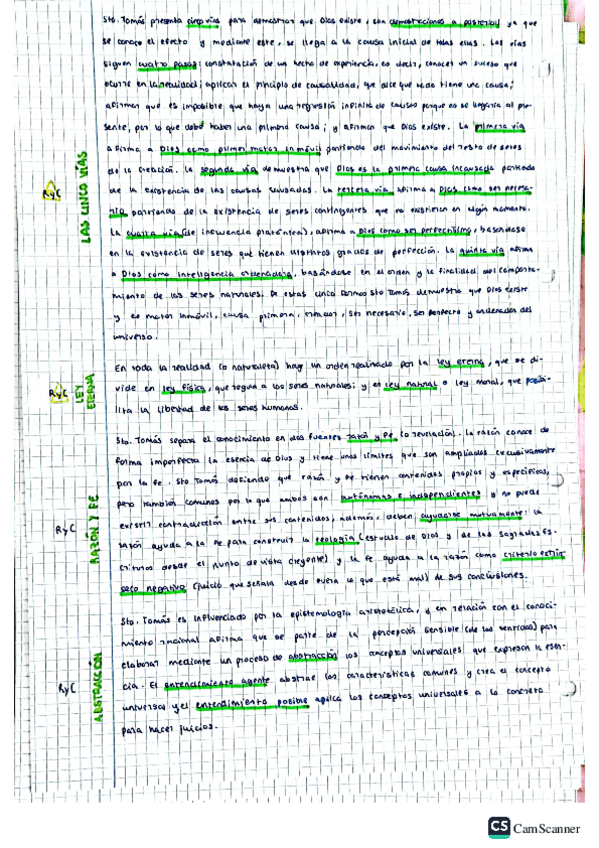 Sto. Tomás presenta cinco vías para demostrar que Dios existe, son demostraciones a posteriori ya que
se conoce el efecto y mediante este, se llega a la causa inicial de todas ellas. Las vías
siguen cuatro pasos: constatación de un hecho de experiencia, es decir, conocer un suceso que
ocurre en la realidad; aplicar el principio de causalidad, que dice que todo tiene una causa;
afirmar que es imposible que haya una regresión infinita de causas porque no se llegaría al pre-
sente, por lo que debe haber una primera causa; y afirmar que Dios existe. La primera vía
afirma a Dios como primer motor inmóvil partiendo del movimiento del resto de seres
de la creación. La segunda vía demuestra que Dios es la primera causa incausada partiendo
de la existencia de las causas causadas. La tercera vía afirma a Dios como ser necesa-
rio partiendo de la existencia de seres contingentes que no existieron en algún momento.
La cuarta vía (de influencia platónica), afirma a Dios como ser perfectísimo, basándose
en la existencia de seres que tienen distintos grados de perfección. La quinta vía afirma
a Dios como inteligencia ordenadora, basándose en el orden y la finalidad del comporta-
miento de los seres naturales. De estas cinco formas Sto Tomás demuestra que Dios existe
y es motor inmóvil, causa primera, creador, ser necesario, ser perfecto y ordenador del
universo.
RyC
LAS CINCO VÍAS
En toda la realidad (o naturaleza) hay un orden realizado por la ley eterna, que se di-
vide en ley física, que regula a los seres naturales; y en ley natural o ley moral, que posibi-
lita la libertad de los seres humanos.
RyC
LEY
ETERNA
Sto. Tomás separa el conocimiento en dos fuentes razón y fe (o revelación). La razón conoce de
forma imperfecta la esencia de Dios y tiene unos límites que son ampliados exclusivamente
por la fe. Sto Tomás defiende que razón y fe tienen contenidos propios y específicos,
pero también comunes por lo que ambos son autónomas e independientes y no puede
existir contradicción entre sus contenidos, además, deben ayudarse mutuamente: la
razón ayuda a la fe para construir la teología (estudio de Dios y de las Sagradas Es-
crituras desde el punto de vista creyente) y la fe ayuda a la razón como criterio extrín-
seco negativo (juicio que señala desde fuera lo que está mal) de sus conclusiones.
RyC
RAZÓN Y FE
Sto. Tomás es influenciado por la epistemología aristotélica, y en relación con el conoci-
miento racional afirma que se parte de la percepción sensible (de los sentidos) para
elaborar mediante un proceso de abstracción los conceptos universales que expresan la esen-
cia. El entendimiento agente abstrae las características comunes y crea el concepto
universal y el entendimiento posible aplica los conceptos universales a lo concreto
para hacer juicios.
RyC
ABSTRACCIÓN
CS CamScanner